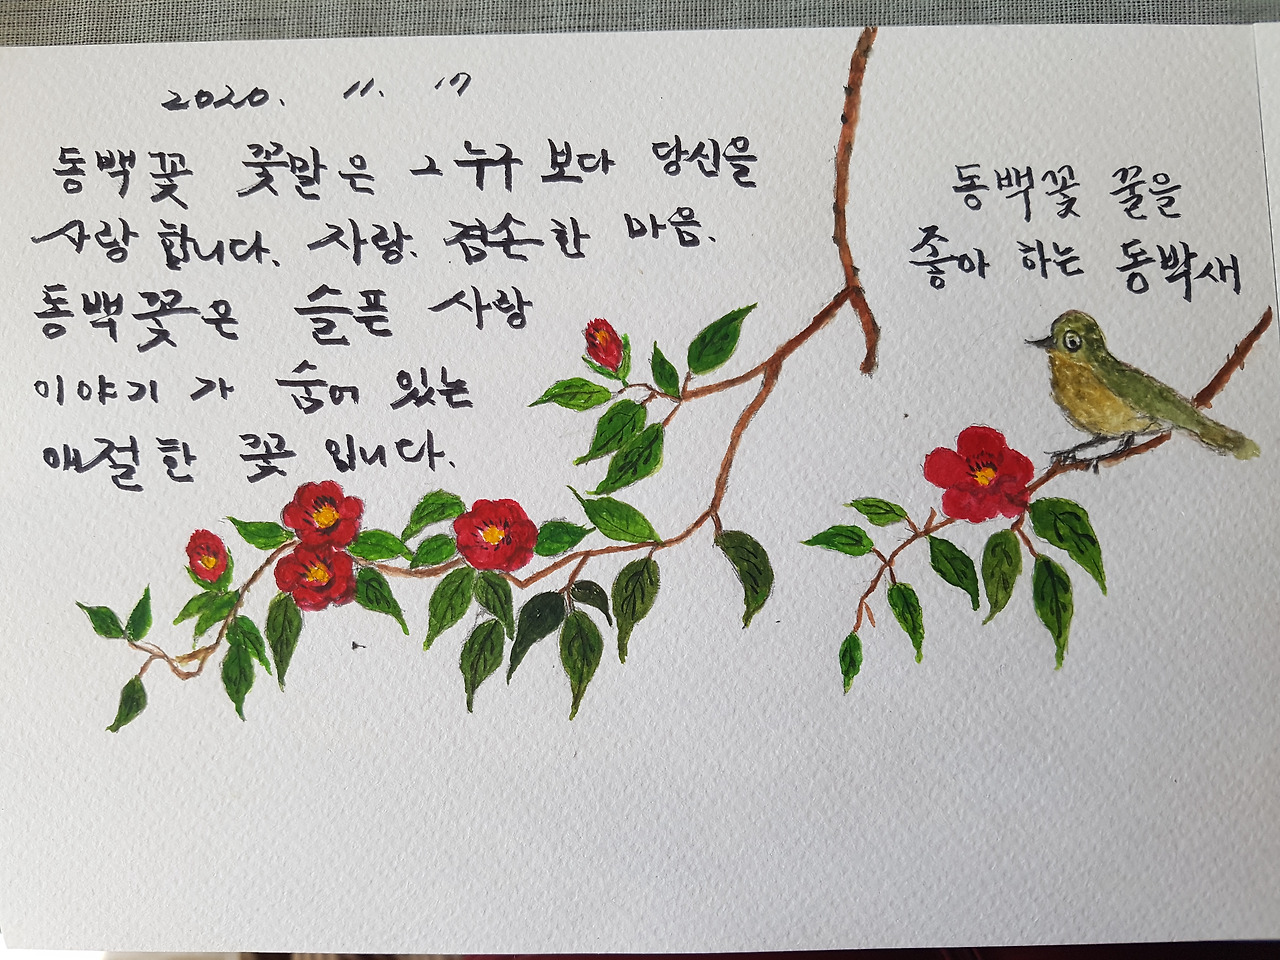 2020. 11. 17
동백꽃 꽃말은 그 누구 보다 당신을
사랑 합니다. 자랑. 겸손한 마음.
동백꽃은 슬픈 사랑
이야기 가 숨어 있는
애절한 꽃 입니다.
동백꽃 꿀을
좋아 하는 동박새